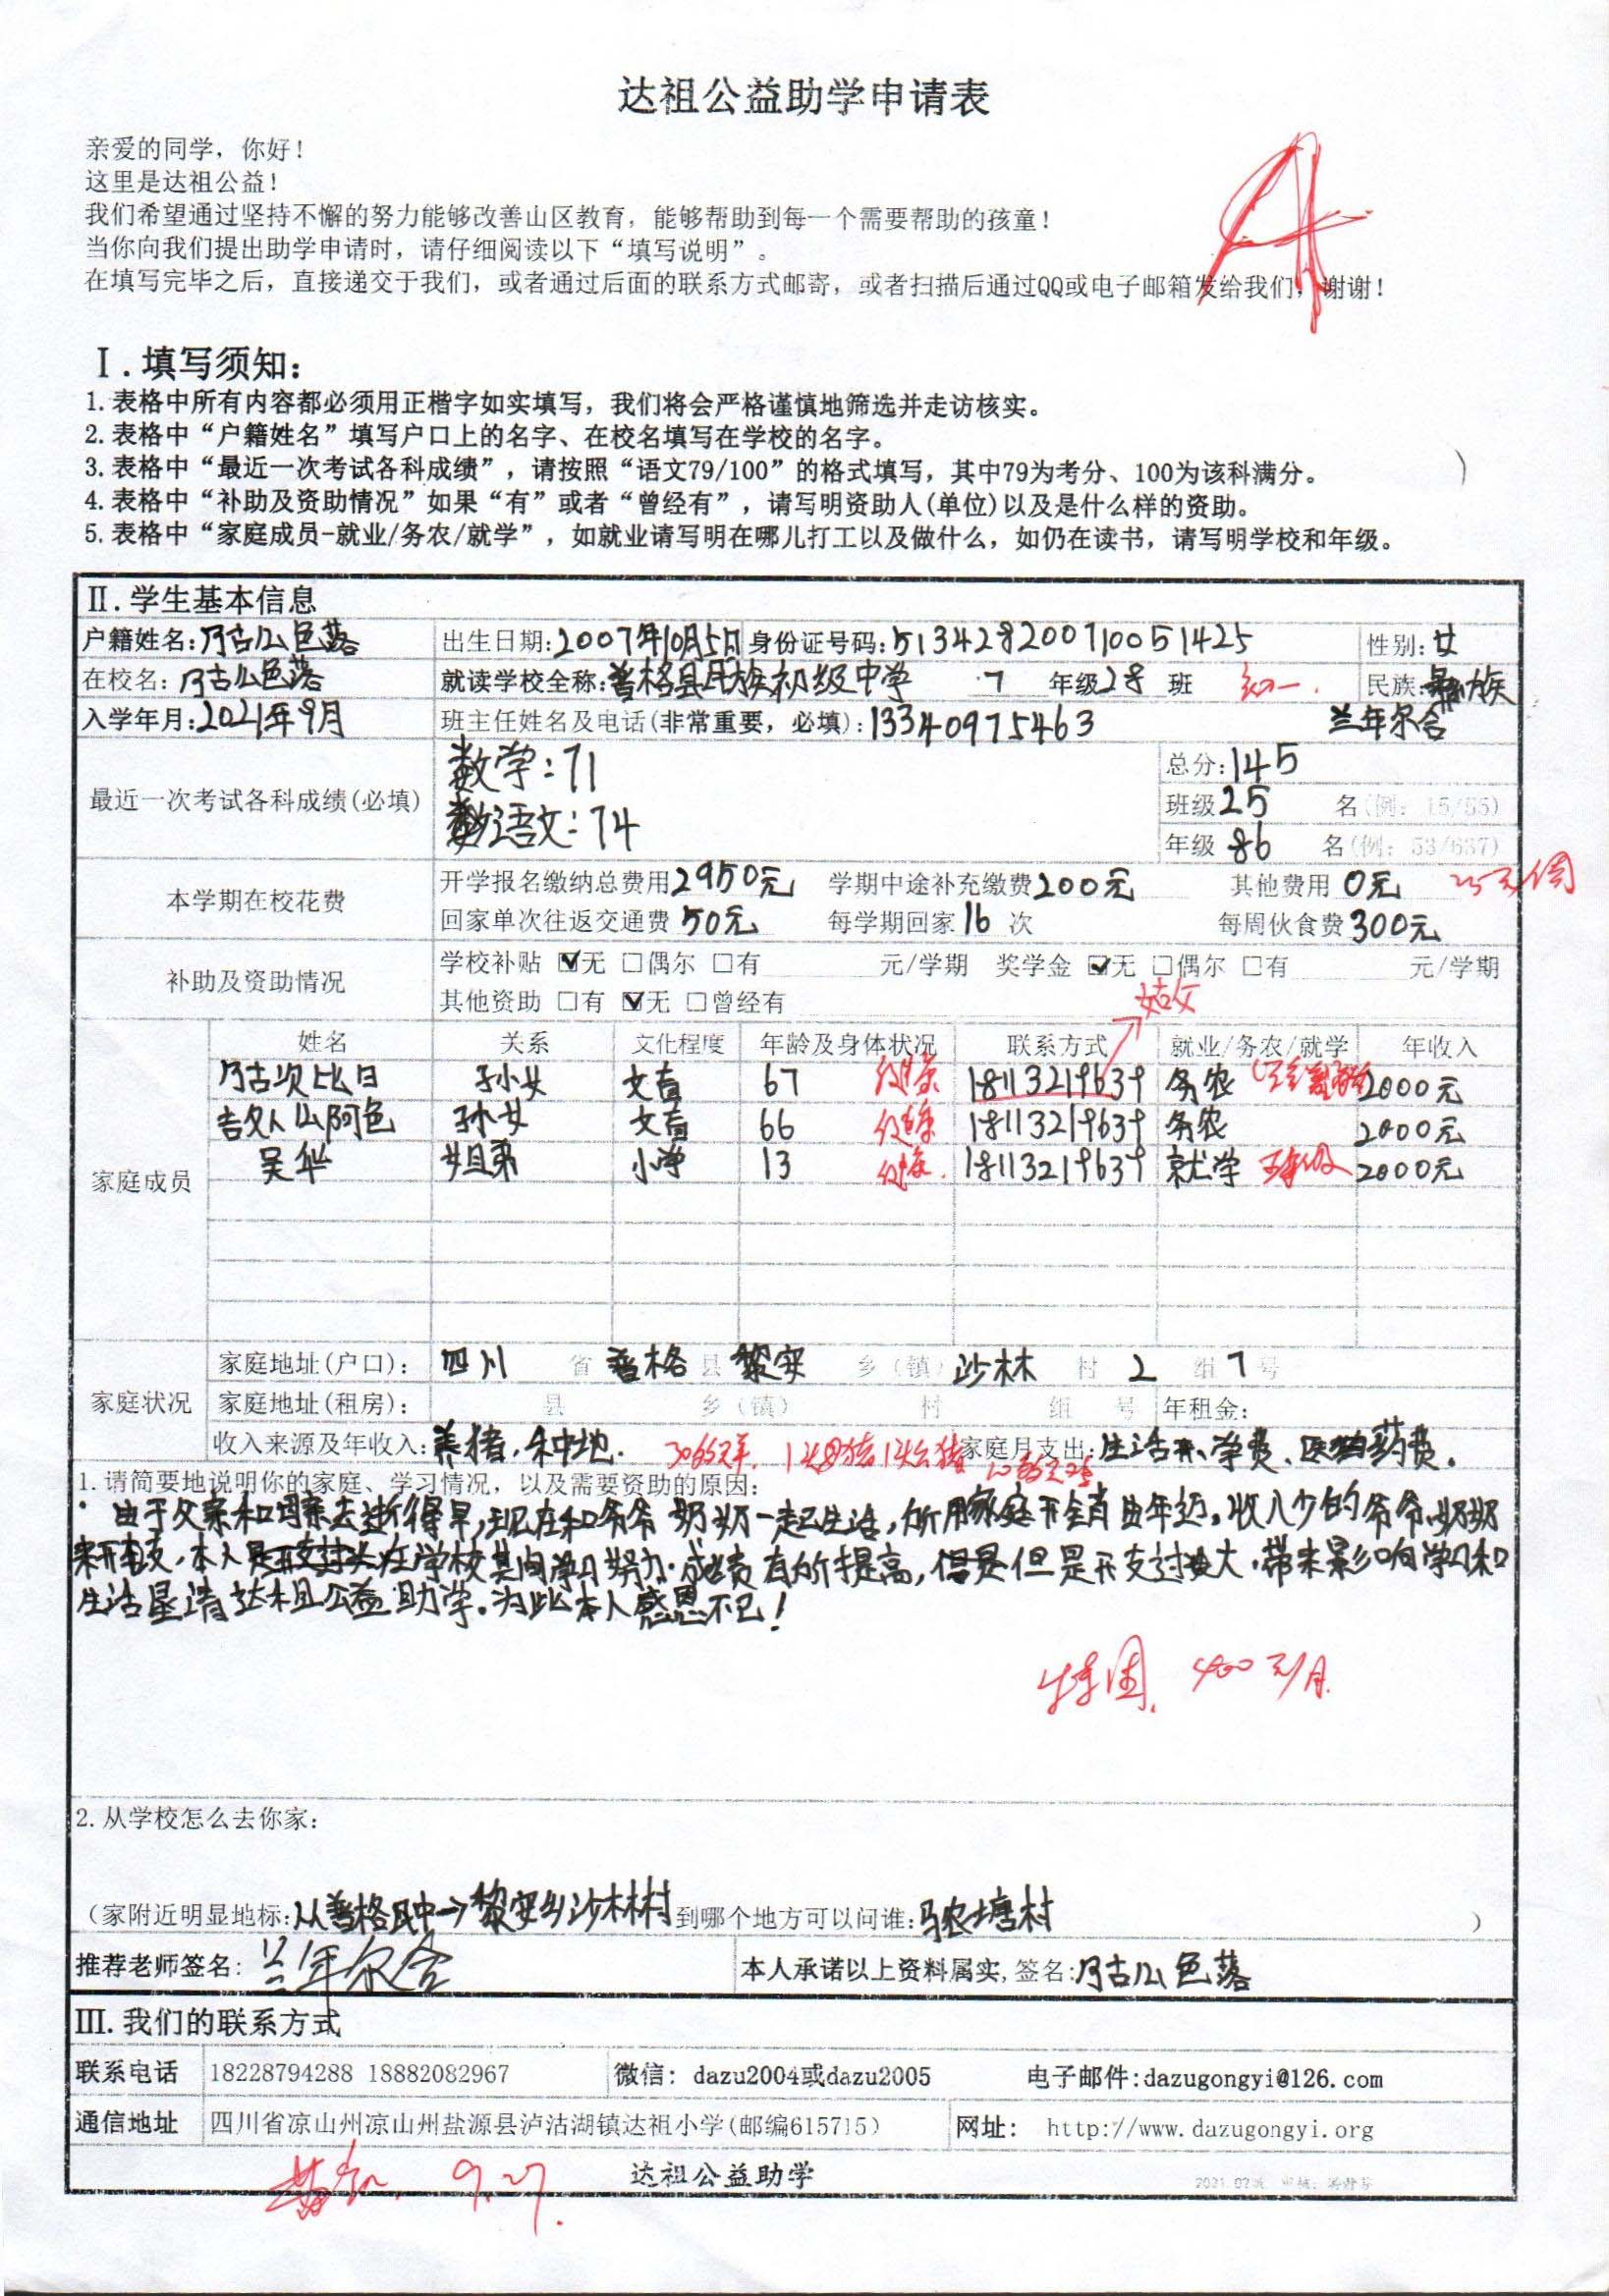 达祖公益助学申请表
亲爱的同学，你好！
这里是达祖公益！
我们希望通过坚持不懈的努力能够改善山区教育，能够帮助到每一个需要帮助的孩童！
当你向我们提出助学申请时，请仔细阅读以下“填写说明”。
在填写完毕之后，直接递交于我们，或者通过后面的联系方式邮寄，或者扫描后通过QQ或电子邮箱发给我们，谢谢！
A
Ⅰ.填写须知：
1.表格中所有内容都必须用正楷字如实填写，我们将会严格谨慎地筛选并走访核实。
2.表格中“户籍姓名”填写户口上的名字、在校名填写在学校的名字。
3.表格中“最近一次考试各科成绩”，请按照“语文79/100”的格式填写，其中79为考分、100为该科满分。
4.表格中“补助及资助情况”如果“有”或者“曾经有”，请写明资助人(单位)以及是什么样的资助。
5.表格中“家庭成员-就业/务农/就学”，如就业请写明在哪儿打工以及做什么，如仍在读书，请写明学校和年级。
Ⅱ.学生基本信息
户籍姓名:阿古么色落 出生日期:2007年10月5日 身份证号码:513428200710051425 性别:女
在校名:阿古么色落 就读学校全称:普格县民族初级中学 7 年级28 班 初一. 民族:彝族
入学年月:2021年9月 班主任姓名及电话(非常重要，必填):13340975463 兰年尔合
最近一次考试各科成绩(必填) 数学:71 总分:145
语文:74 班级25 名(例: 15/55)
年级 86 名(例: 53/637)
本学期在校花费 开学报名缴纳总费用2950元 学期中途补充缴费200元 其他费用 0元 25元/周
回家单次往返交通费 50元 每学期回家16 次 每周伙食费300元
补助及资助情况 学校补贴 ☑无 □偶尔 □有 元/学期 奖学金 ☑无 □偶尔 □有 元/学期
其他资助 □有 ☑无 □曾经有 姑父
姓名 关系 文化程度 年龄及身体状况 联系方式 就业/务农/就学 年收入
阿古次比日 孙女 文盲 67 健康 18113219639 务农 2000元
吉女人么阿色 孙女 文盲 66 健康 18113219639 务农 2000元
家庭成员 吴华 姐弟 小学 13 健康. 18113219639 就学 五年级 2000元
家庭状况 家庭地址(户口): 四川 省 普格 县 黎安 乡（镇）沙林 村 2 组 7 号
家庭地址(租房): 县 乡（镇） 村 组 号 年租金:
收入来源及年收入:养猪，种地. 1头母猪1头公猪 家庭月支出:生活费、学费、医药费.
1.请简要地说明你的家庭、学习情况，以及需要资助的原因:
由于父亲和母亲去逝得早,现在和爷爷奶奶一起生活,所用家庭开销由年迈,收入少的爷爷奶奶
来开支,本人在学校其间学习努力.成绩有所提高,但是开支过大,带来影响学习和
生活垦请达祖公益助学.为此本人感恩不已!
特困. 400元/月.
2.从学校怎么去你家:
（家附近明显地标:从普格民中→黎安乡沙林村到哪个地方可以问谁:驼农塘村 ）
推荐老师签名: 兰年尔合 本人承诺以上资料属实,签名:阿古么色落
Ⅲ.我们的联系方式
联系电话 18228794288 18882082967 微信: dazu2004或dazu2005 电子邮件:dazugongyi@126.com
通信地址 四川省凉山州凉山州盐源县泸沽湖镇达祖小学(邮编615715) 网址: http://www.dazugongyi.org
9.27. 达祖公益助学